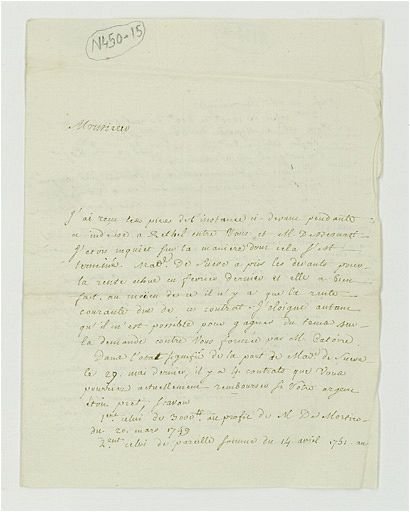 N450-15
Monsieur
J'ai recu les pieces de l'instance ci-devant pendante
et indécise a Rethel entre Vous et M
J'etois inquiet sur la maniere dont cela s'est
terminé. Mad.e De a pris les devants pour
la rente echue en fevrier dernier et elle a bien
fait, au moien de ce il n'y a que la rente
courante due de ce contrat. J'eloigne autant
qu'il m'est possible pour gagner du tems sur
la demande contre Vous formée par M
Dans l'etat signifié de la part de Mad.e de
le 29. mai dernier, il y a 4 contrats que Vous
pourriez actuellement rembourser si Votre argent
etoit pret, scavoir
1.ent celui de 3000.lt au profit de M De
du 20. mars 1749
2.ent celui de pareille somme du 14. avril 1751. au